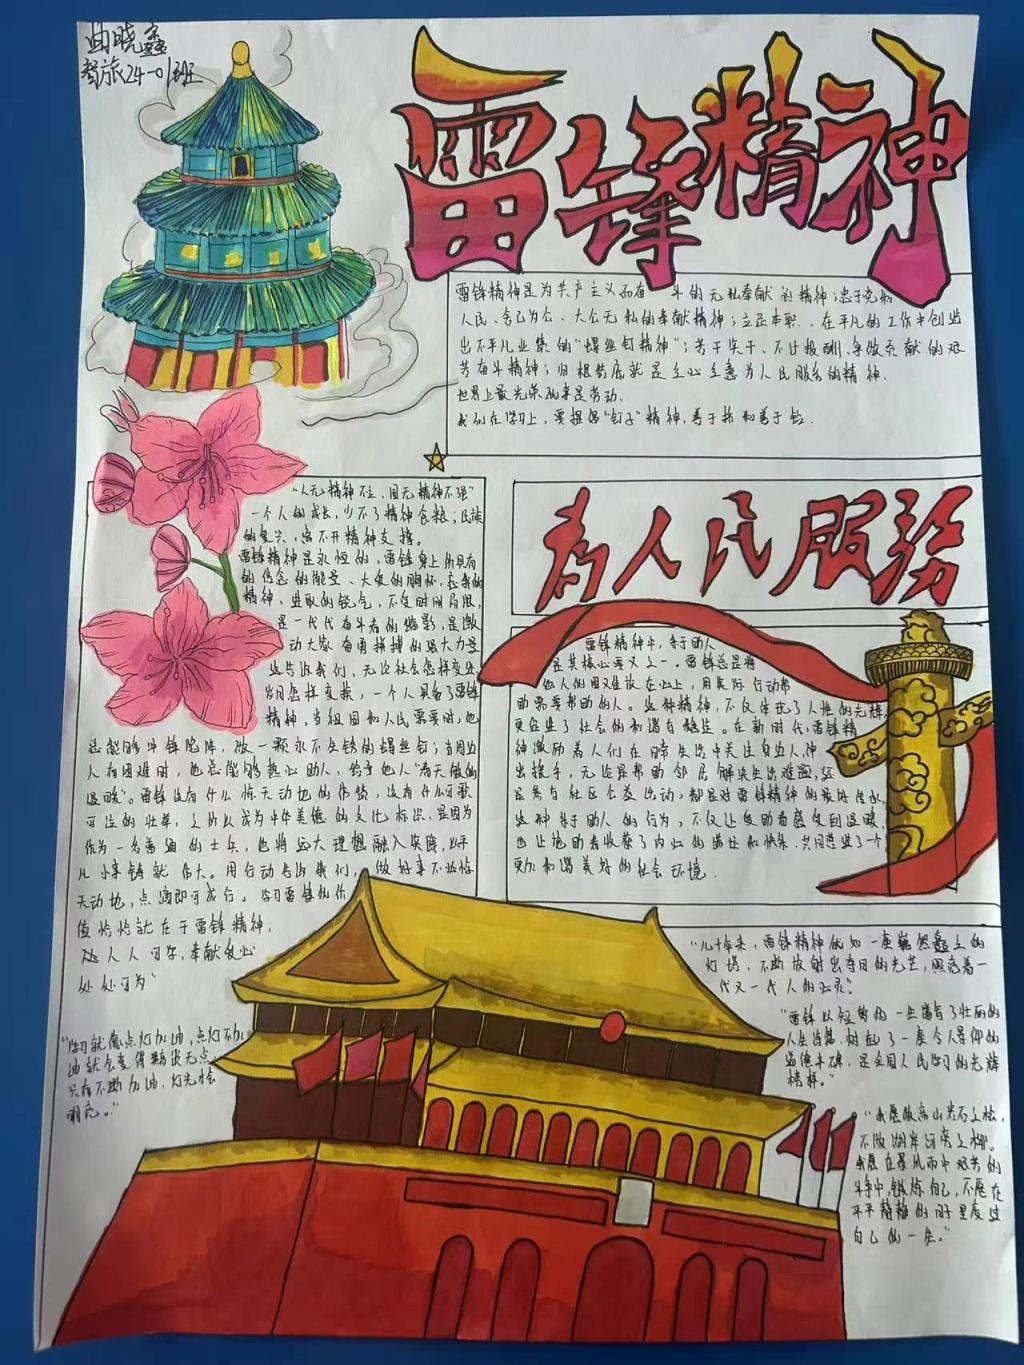 曲晓鑫
智旅24-01班
雷锋精神
雷锋精神是为共产主义而奋斗的无私奉献的精神；忠于党和
人民、舍己为公、大公无私的奉献精神；立足本职、在平凡的工作中创造
出不平凡业绩的“螺丝钉精神”；苦干实干、不计报酬、争做贡献的艰
苦奋斗精神；归根结底就是全心全意为人民服务的精神.
世界上最光荣的事是劳动.
我们在学习上，要提倡“钉子”精神，善于挤和善于钻.
“人无精神不立，国无精神不强”
一个人的成长，少不了精神食粮；民族
的复兴，离不开精神支撑。
雷锋精神是永恒的，雷锋身上所具有
的信念的能量、大爱的胸怀、忘我的
精神、进取的锐气，不受时间局限，
是一代代奋斗者的缩影，是激
动大家奋勇拼搏的强大力量
这告诉我们，无论社会怎样变迁
岁月怎样变换，一个人具备了雷锋
精神，当祖国和人民需要时，他
总能够冲锋陷阵，做一颗永不生锈的螺丝钉；当周边
人有困难时，他总能够热心助人，给予他人“春天般的
温暖”。雷锋没有什么惊天动地的伟绩，没有什么可歌
可泣的壮举，之所以成为中华美德的文化标识，是因为
作为一名普通的士兵，他将远大理想融入实践，以平
凡小事铸就伟大。用行动告诉我们，做好事不必惊
天动地，点滴即可成行。学习雷锋的价
值恰恰就在于雷锋精神，
人人可学，奉献爱心
处处可为”
“学习就像点灯加油，点灯不加
油就会变得暗淡无光，
只有不断加油，灯光才会
明亮。”
为人民服务
雷锋精神中，乐于助人
是其核心要义之一。雷锋总是将
他人的困难放在心上，用实际行动帮
助需要帮助的人。这种精神，不仅体现了人性的光辉，
更促进了社会的和谐与稳定。在新时代，雷锋精
神激励着人们在日常生活中关注身边人，伸
出援手，无论是帮助邻居解决生活难题，还
是参与社区公益活动，都是对雷锋精神的最好传承，
这种乐于助人的行为，不仅让受助者感受到温暖，
也让施助者收获了内心的满足和快乐，共同营造了一个
更加和谐美好的社会环境.
“几十年来，雷锋精神就如一座巍然矗立的
灯塔，不断放射出夺目的光芒，照亮着一
代又一代人的心灵。”
“雷锋以短暂的一生谱写了壮丽的
人生诗篇，树起了一座令人景仰的
道德丰碑，是全国人民学习的光辉
榜样。”
“我愿做高山岩石之松，
不做湖岸河旁之柳。
我愿在暴风雨中艰苦的
斗争中锻炼自己，不愿在
平平静静的日子里度过
自己的一生。”